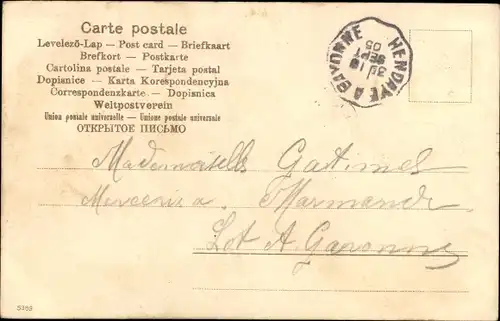 Carte postale
Levelező-Lap — Post card — Briefkaart
Brefkort — Postkarte
Cartolina postale — Tarjeta postal
Dopisnice — Karta Korespondencyjna
Correspondenzkarte — Dopisnica
Weltpostverein
Union postale universelle — Unione postale universale
ОТКРЫТОЕ ПИСЬМО
HENDAYE A BAYONNE
SEPT
05
Mademoiselle
Marmande
Lot & Garonne
5269